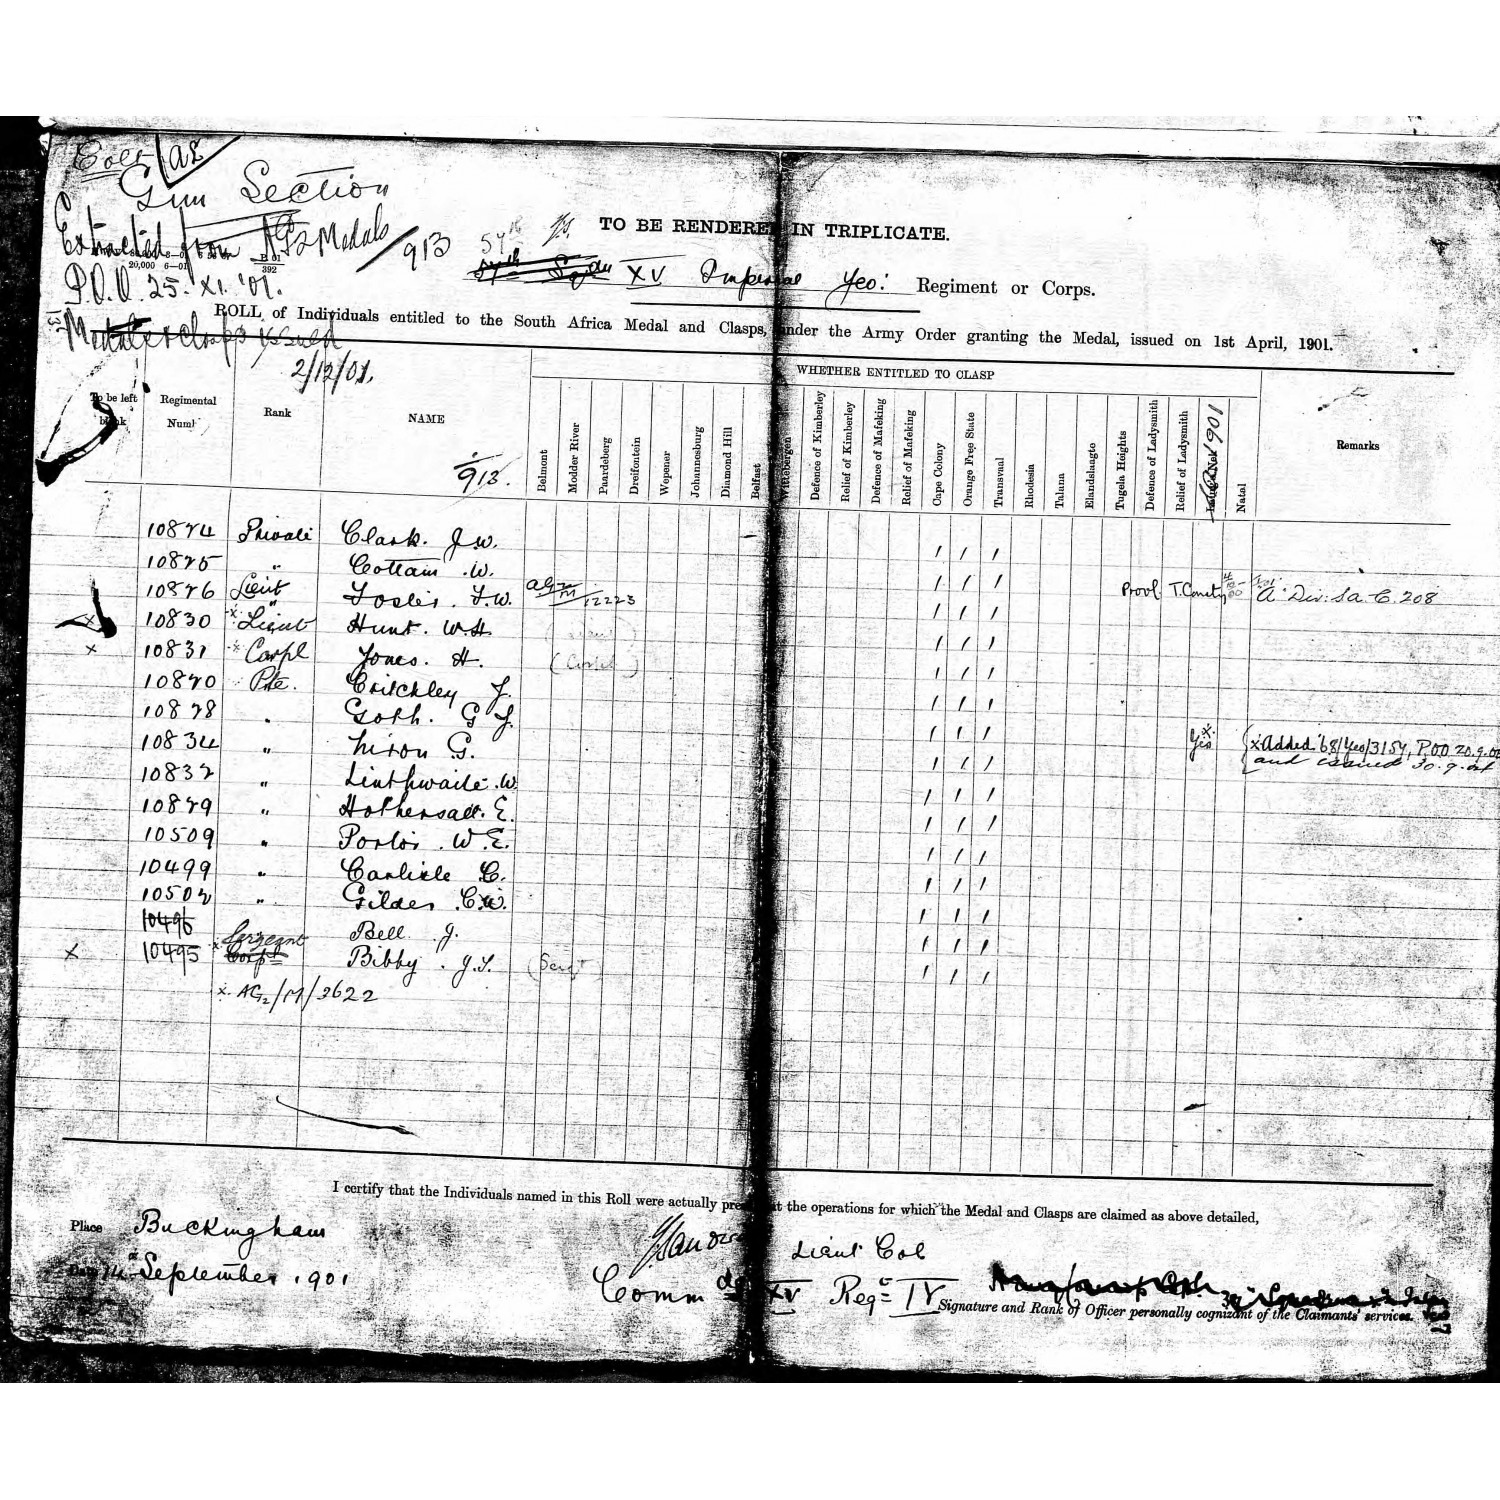 Colt A2
Gun Section
Extracted from AG2 Medals/913
20,000 6—01 B 01
392
P.O.O. 25.XI.'01.
Medals & clasps issued
2/12/01.
TO BE RENDERED IN TRIPLICATE.
57th
57th Sqdn XV Imperial Yeo: Regiment or Corps.
ROLL of Individuals entitled to the South Africa Medal and Clasps, under the Army Order granting the Medal, issued on 1st April, 1901.
WHETHER ENTITLED TO CLASP
To be left blank Regimental Number Rank NAME Belmont Modder River Paardeberg Dreifontein Wepener Johannesburg Diamond Hill Belfast Wittebergen Defence of Kimberley Relief of Kimberley Defence of Mafeking Relief of Mafeking Cape Colony Orange Free State Transvaal Rhodesia Talana Elandslaagte Tugela Heights Defence of Ladysmith Relief of Ladysmith 1901 Natal Remarks
913.
10824 Private Clark. J.W. / / /
10825 " Cottam .W. / / /
10826 Lieut Foster. F.W. AG2/M/12223 / / / Proof T. County "A" Div: S.a.C. 208
x 10830 x Lieut Hunt. W.H. / / /
x 10831 x Corpl Jones. H. (Corpl) / / /
10820 Pte. Critchley J. / / /
10828 " Goth. G J. / / /
10834 " Nixon G. / / / x Yes x Added 68/Yeo/3154, P.O.O 20.9.02
and issued 30.9.02
10832 " Linthwaite .W. / / /
10829 " Hothersall. E. / / /
10509 " Porter . W.E. / / /
10499 " Carlisle C. / / /
10502 " Gilder .C.W. / / /
10496 " Bell J. / / /
x 10495 x Sergeant Corpl Bibby . J.T. (Sergt) / / /
x. AG2/M/3622
I certify that the Individuals named in this Roll were actually present at the operations for which the Medal and Clasps are claimed as above detailed,
Place Buckingham
Lieut Col
Date 14th September 1901
Commdg XV Regt IY
Signature and Rank of Officer personally cognizant of the Claimants' services.